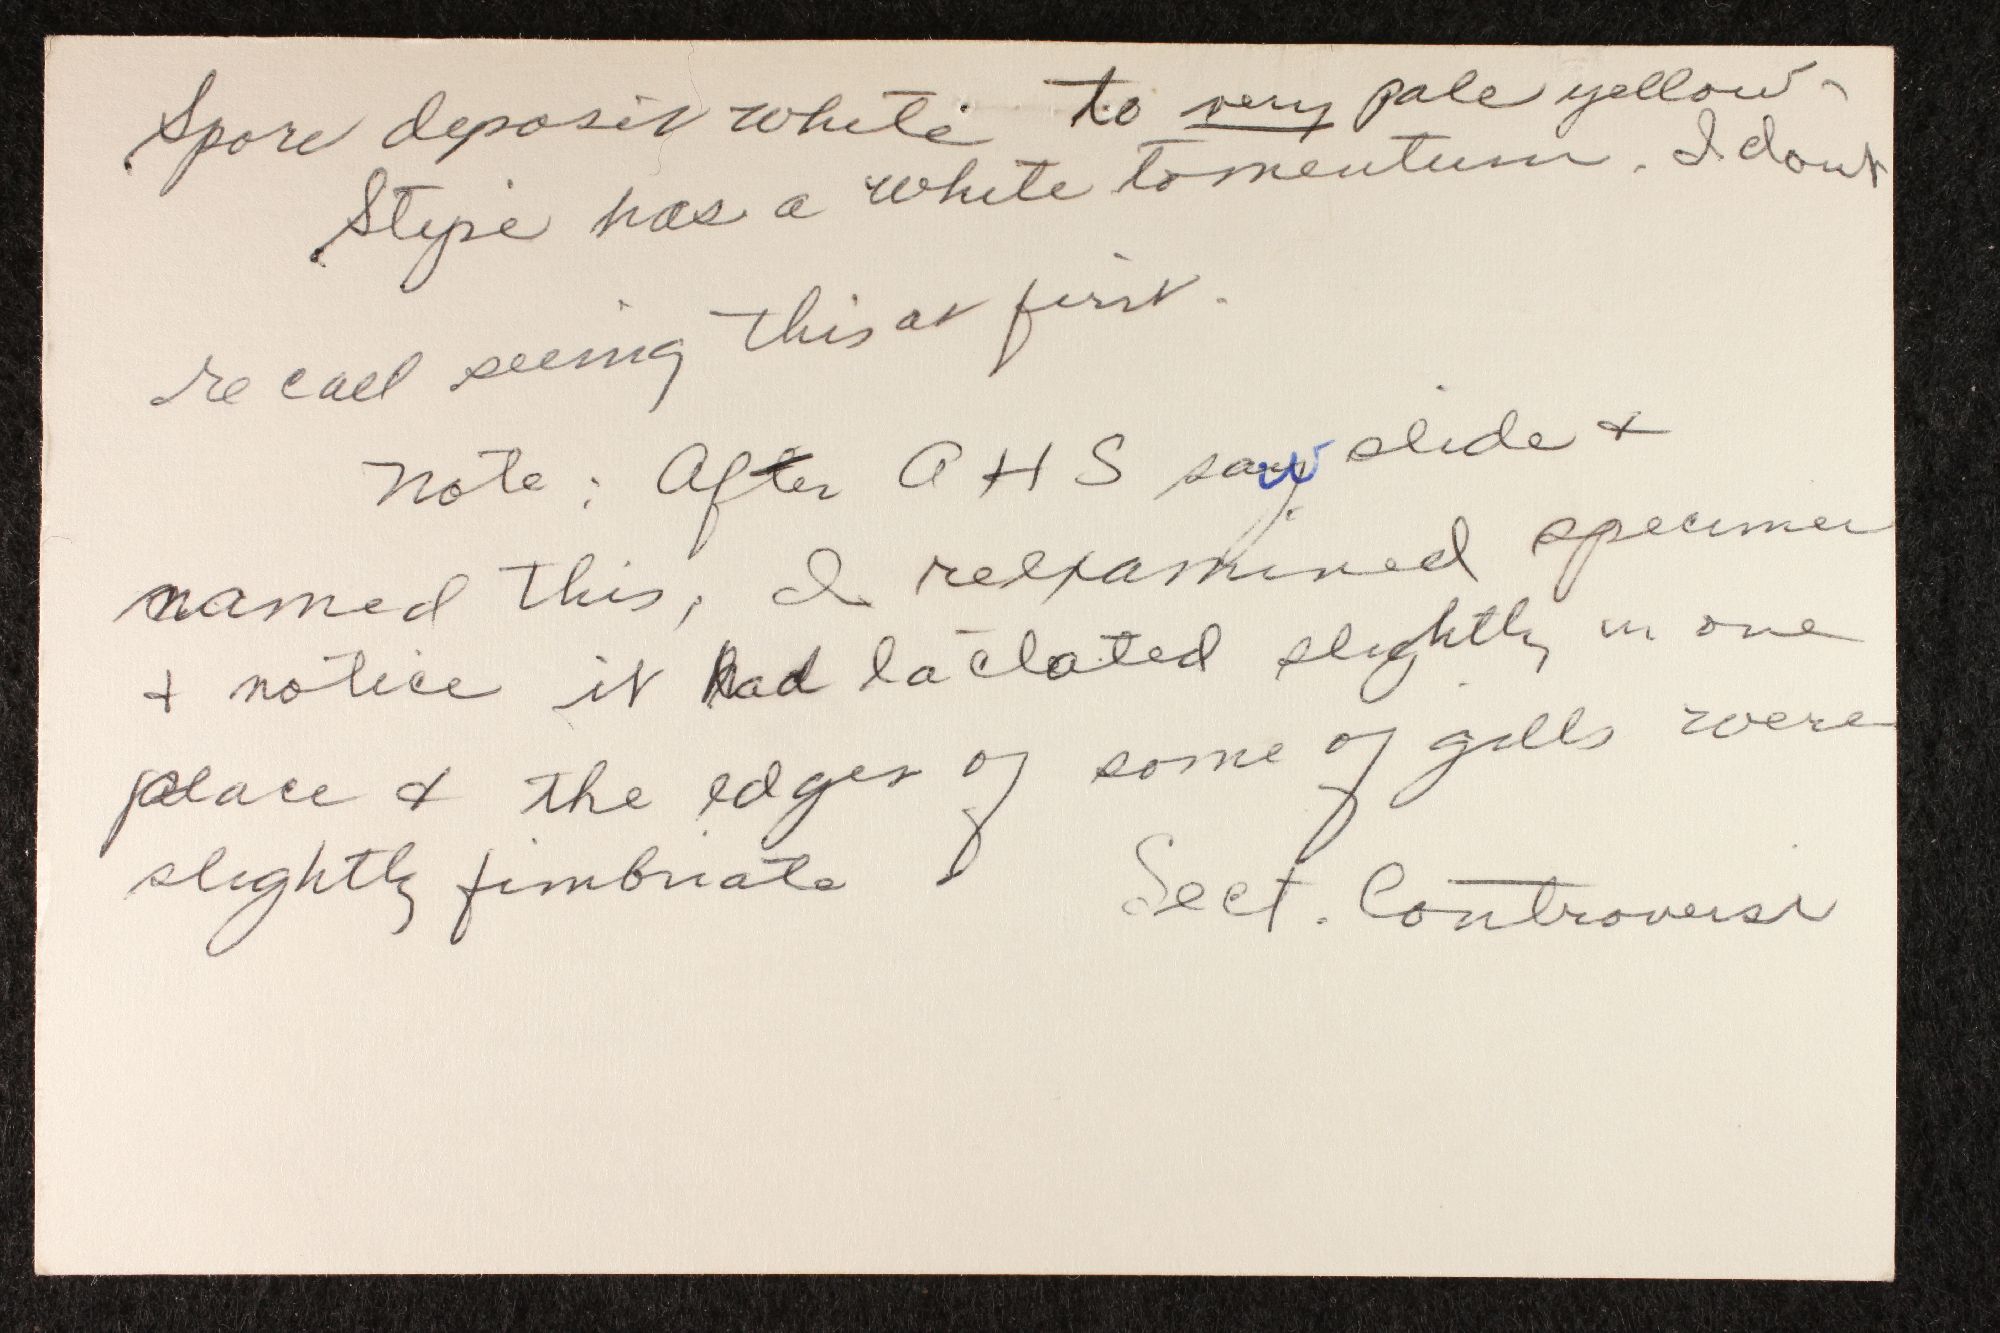 Spore deposit white to very pale yellow.
Stipe has a white tomentum. I dont
recall seeing this at first.
Note: After AHS saw slide +
named this, I reexamined specimen
+ notice it had laclated slightly in one
place + the edges of some of gills were
slightly fimbriate
Sect. Controversi